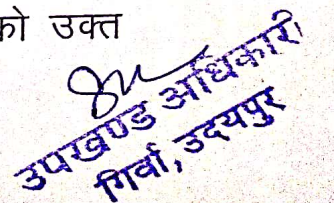 को उक्त
उपखण्ड अधिकारी
गिर्वा, उदयपुर